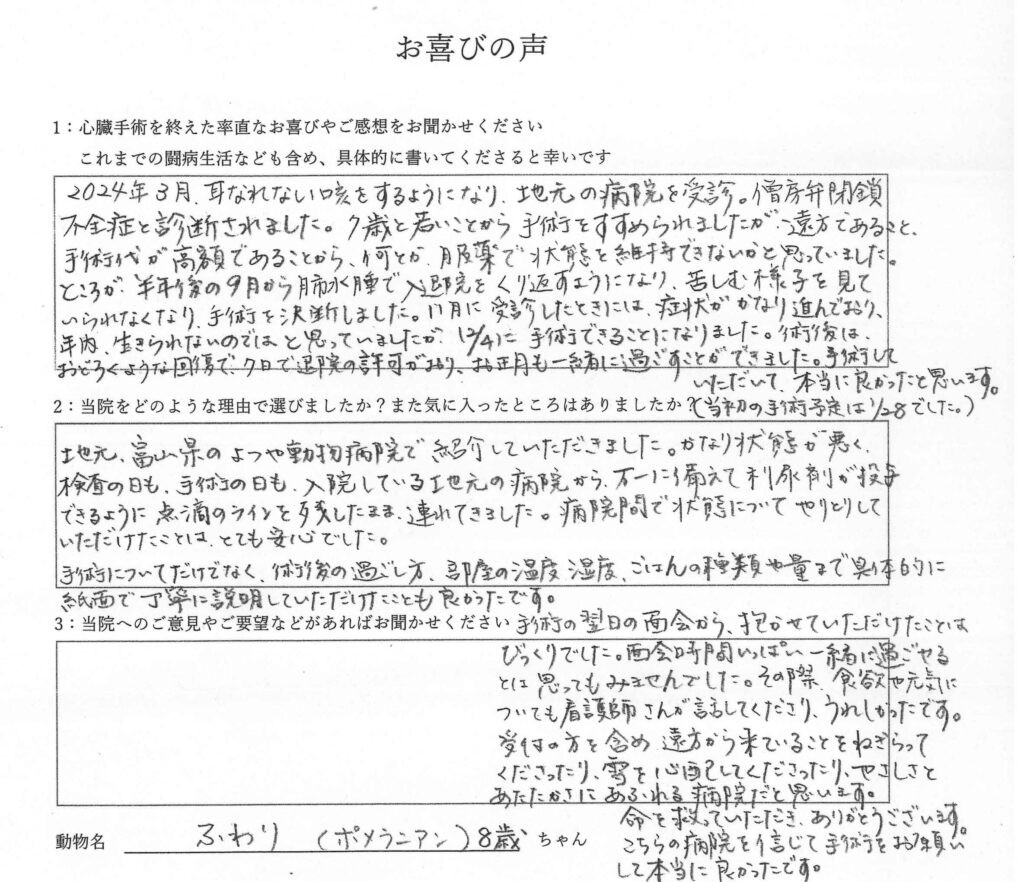 お喜びの声
1：心臓手術を終えた率直なお喜びやご感想をお聞かせください
これまでの闘病生活なども含め、具体的に書いてくださると幸いです
2024年3月、耳なれない咳をするようになり、地元の病院を受診。僧房弁閉鎖
不全症と診断されました。7歳と若いことから手術をすすめられましたが、遠方であること、
手術代が高額であることから、何とか、服薬で状態を維持できないかと思っていました。
ところが、半年後の9月から肺水腫で入退院をくり返すようになり、苦しむ様子を見て
いられなくなり、手術を決断しました。11月に受診したときには、症状がかなり進んでおり、
年内、生きられないのではと思っていましたが、12/4に手術できることになりました。術後は、
おどろくような回復で、7日で退院の許可がおり、お正月も一緒に過ごすことができました。手術して
いただいて、本当に良かったと思います。
2：当院をどのような理由で選びましたか？また気に入ったところはありましたか？
(当初の手術予定は1/28でした。)
地元、富山県のよつや動物病院で紹介していただきました。かなり状態が悪く、
検査の日も、手術の日も、入院している地元の病院から、万一に備えて利尿剤が投与
できるように点滴のラインを残したまま、連れてきました。病院間で状態についてやりとりして
いただけたことは、とても安心でした。
手術についてだけでなく、術後の過ごし方、部屋の温度湿度、ごはんの種類や量まで具体的に
紙面で丁寧に説明していただけたことも良かったです。
3：当院へのご意見やご要望などがあればお聞かせください
手術の翌日の面会から、抱かせていただけたことは
びっくりでした。面会時間いっぱい一緒に過ごせる
とは思ってもみませんでした。その際、食欲や元気に
ついても看護師さんが話してくださり、うれしかったです。
受付の方を含め遠方から来ていることをねぎらって
くださったり、雪を心配してくださったり、やさしさと
あたたかさにあふれる病院だと思います。
命を救っていただき、ありがとうございます。
こちらの病院を信じて手術をお願い
して本当に良かったです。
動物名 ふわり (ポメラニアン) 8歳 ちゃん